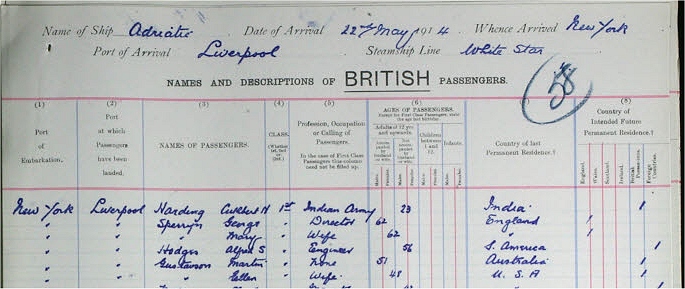 Name of Ship Adriatic Date of Arrival 22nd May 1914 Whence Arrived New York
Port of Arrival Liverpool Steamship Line White Star
NAMES AND DESCRIPTIONS OF BRITISH PASSENGERS.
58
(1) (2) (3) (4) (5) (6) (7) (8)
Port of Embarkation.
Port at which Passengers have been landed.
NAMES OF PASSENGERS.
CLASS.
Profession, Occupation or Calling of Passengers.
In the case of First Class Passengers this column need not be filled up.
AGES OF PASSENGERS.
Adults of 12 years and upwards.
Children between 1 and 12.
Infants.
Country of last Permanent Residence.†
Country of Intended Future Permanent Residence.†
England. Wales. Scotland. Ireland. British Possessions. Foreign Countries.
Males. Females. Males. Females. Males. Females. Males. Females.
New York Liverpool Harding Cuthbert N 1st Indian Army 23 India 1
" " Sperryn George " Director 62 England 1
" " " Mary " Wife 62 " 1
" " Hodges Alfred S " Engineer 56 S. America 1
" " Gustavson Martin " None 51 Australia 1
" " " Ellen " Wife 48 U.S.A 1